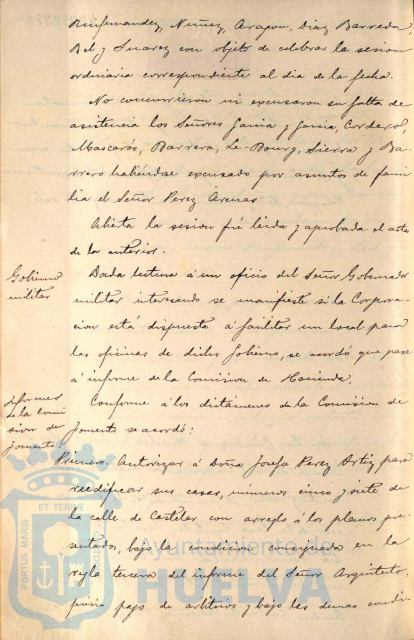 Ruifernandez, Nuñez, Aragon, Diaz Barreda,
Bel y Suarez con objeto de celebrar la sesion
ordinaria correspondiente al dia de la fecha.
No concurrieron ni excusaron su falta de
asistencia los Señores Garcia y Garcia, Cordero,
Mascarós, Barrera, Le-Bourg, Sierra y Ba-
rrero habiéndose excusado por asuntos de fami-
lia el Señor Perez Arenas
Abierta la sesion fué leida y aprobada el acta
de la anterior.
Gobierno
militar
Dada lectura á un oficio del Señor Gobernador
militar interesando se manifieste si la Corpora-
cion está dispuesta á facilitar un local para
las oficinas de dicho Gobierno, se acordó que pase
á informe de la Comision de Hacienda.
Informes
de la Comi
sion de
Fomento.
Conforme á los dictámenes de la Comision de
Fomento se acordó:
Primero. Autorizar á Doña Josefa Perez Ortiz para
reedificar sus casas, numeros cinco y siete de
la calle de Castelar con arreglo á los planos pre-
sentados, bajo la condicion consignada en la
regla tercera del informe del Señor Arquitecto,
prévio pago de arbitrios y bajo las demas condi-
PORTUS MARIS
ET TERRÆ
Ayuntamiento de
HUELVA